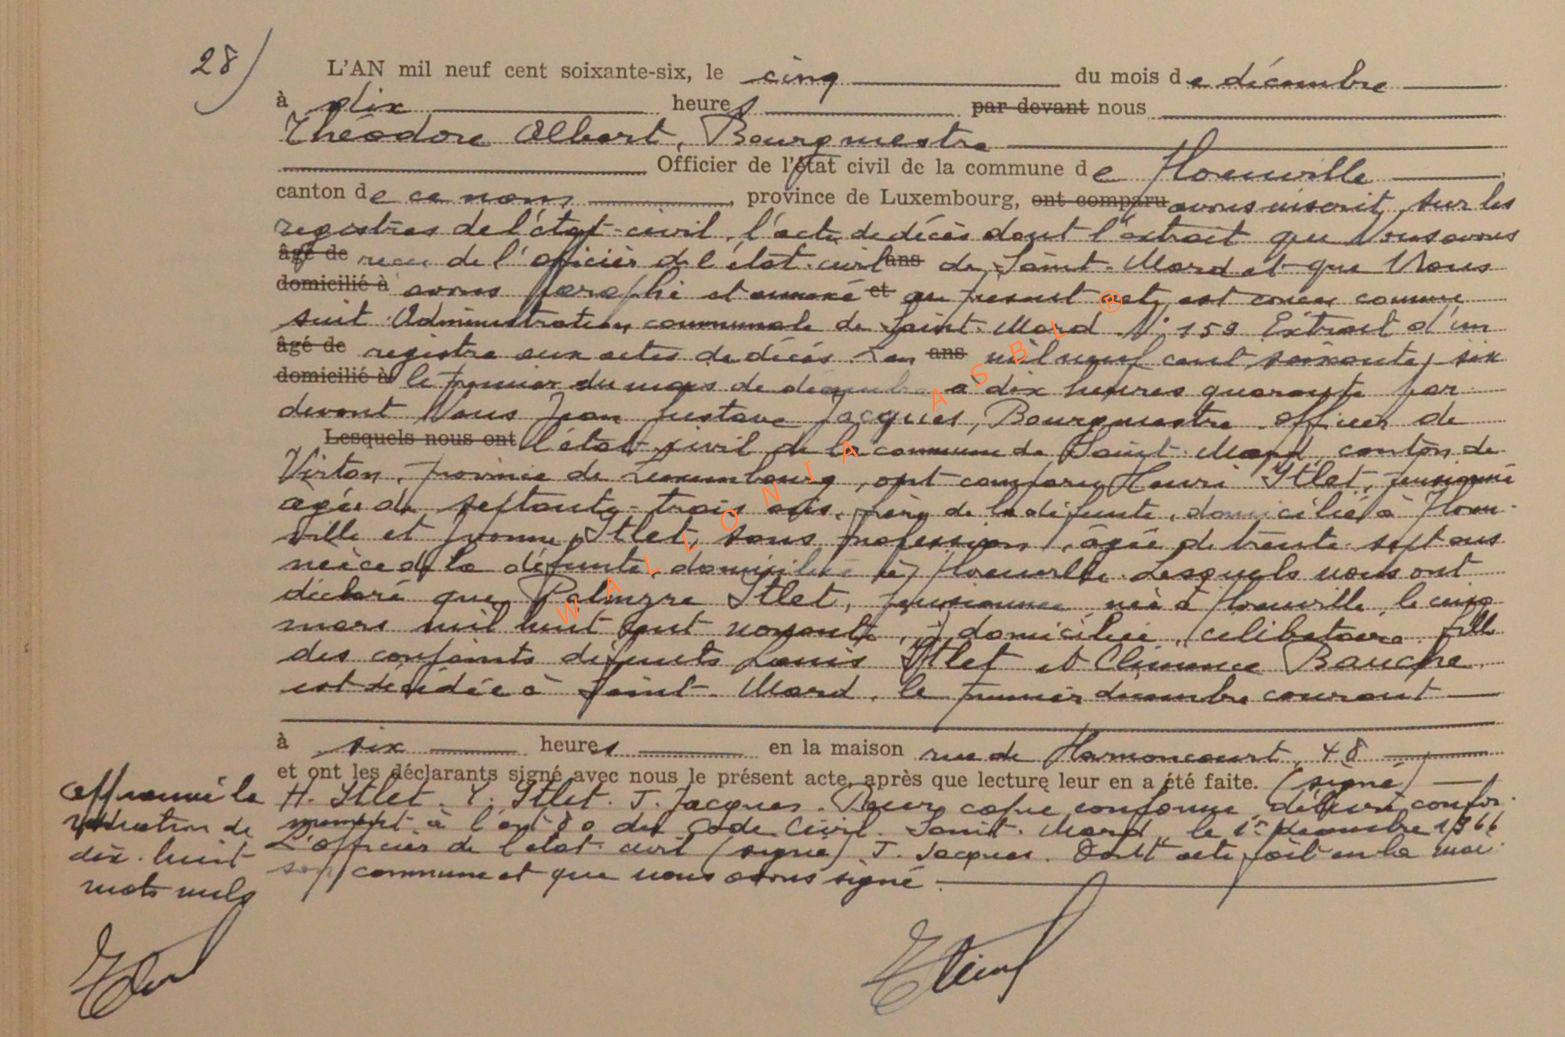 28)
L'AN mil neuf cent soixante-six, le cinq du mois de décembre
à dix heures par devant nous
Théodore Albert, Bourgmestre
Officier de l'état civil de la commune de Florenville
canton de ce nom, province de Luxembourg, ont comparu avons inscrit, sur les
registres de l'état-civil, l'acte de décès dont l'extrait que Nous avons
âgé de recu de l'officier de l'état-civil ans de Saint-Mard et que Nous
domicilié à avons paraphé et annexé et au présent acte, est concu comme
suit Administration communale de Saint-Mard N° 159 Extrait d'un
âgé de registre aux actes de décès. L'an ans mil neuf cent soixante, six
domicilié à le premier du mois de décembre à dix heures quarante par
devant Nous Jean Gustave Jacques, Bourgmestre officier de
Lesquels nous ont l'état civil de la commune de Saint-Mard canton de
Virton, province de Luxembourg, ont comparu Henri Itlet, pensionné
âgé de septante-trois ans, frère de la défunte, domicilié à Floren-
ville et Yvonne Itlet, sans profession, âgée de trente-sept ans
nièce de la défunte, domiciliée à Florenville. Lesquels nous ont
déclaré que Palmyre Itlet, pensionnée née à Florenville, le cinq
mars mil huit cent nonante, y domiciliée, célibataire fille
des conjoints défunts Louis Itlet et Clémence Bauche
est décédée à Saint-Mard, le premier décembre courant
à six heures en la maison rue de Harnoncourt, 48
et ont les déclarants signé avec nous le présent acte, après que lecture leur en a été faite. (signé)
H. Itlet. Y. Itlet. J. Jacques. Pour copie conforme délivré confor-
mément à l'art 80 du Code Civil. Saint-Mard, le 1er décembre 1966
L'officier de l'état civil (signé) J. Jacques. Dont acte fait en la mai-
son commune et que nous avons signé.
Approuvé la
radiation de
dix-huit
mots nuls
WALLONIA ASBL ®